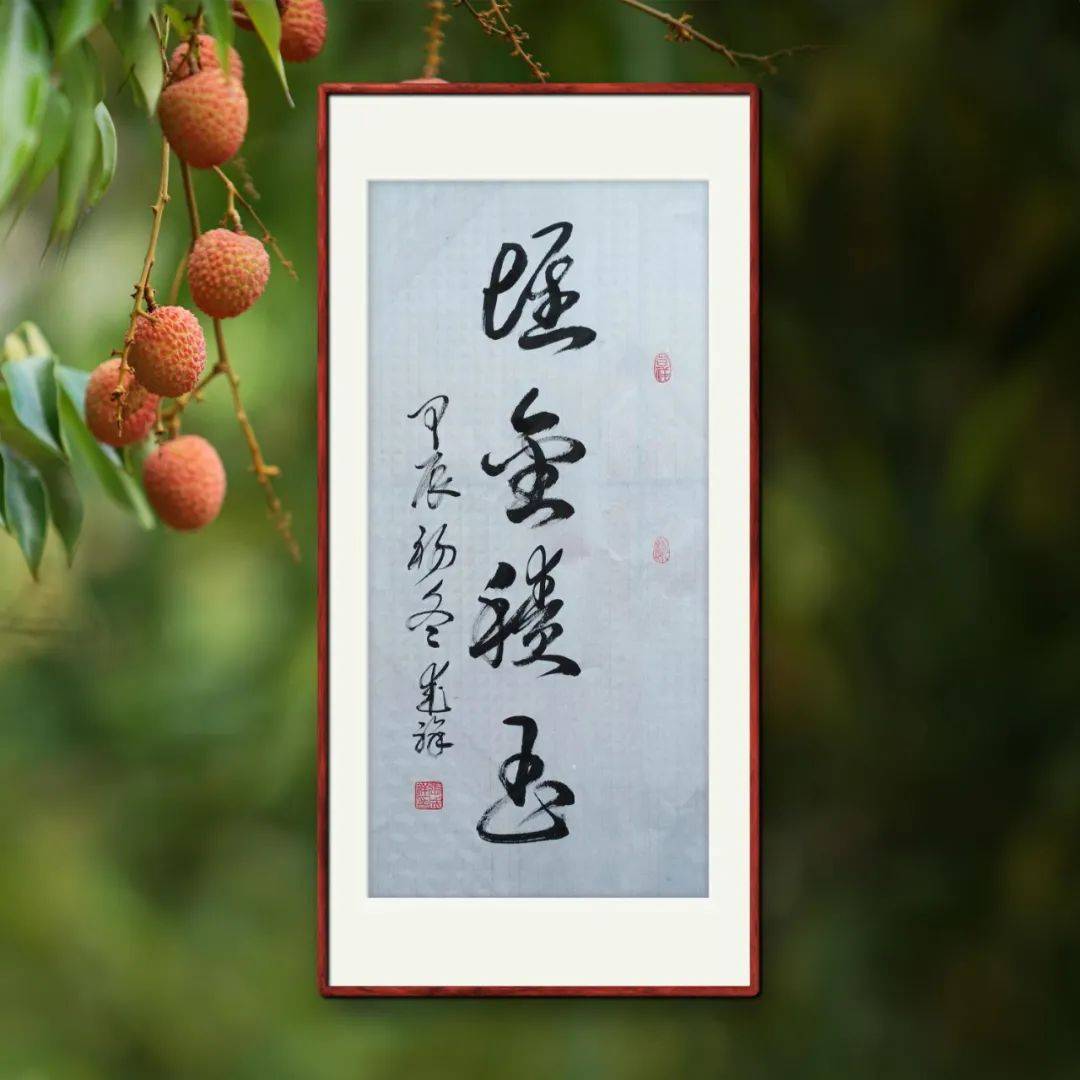 堆金積玉
甲辰初冬祥